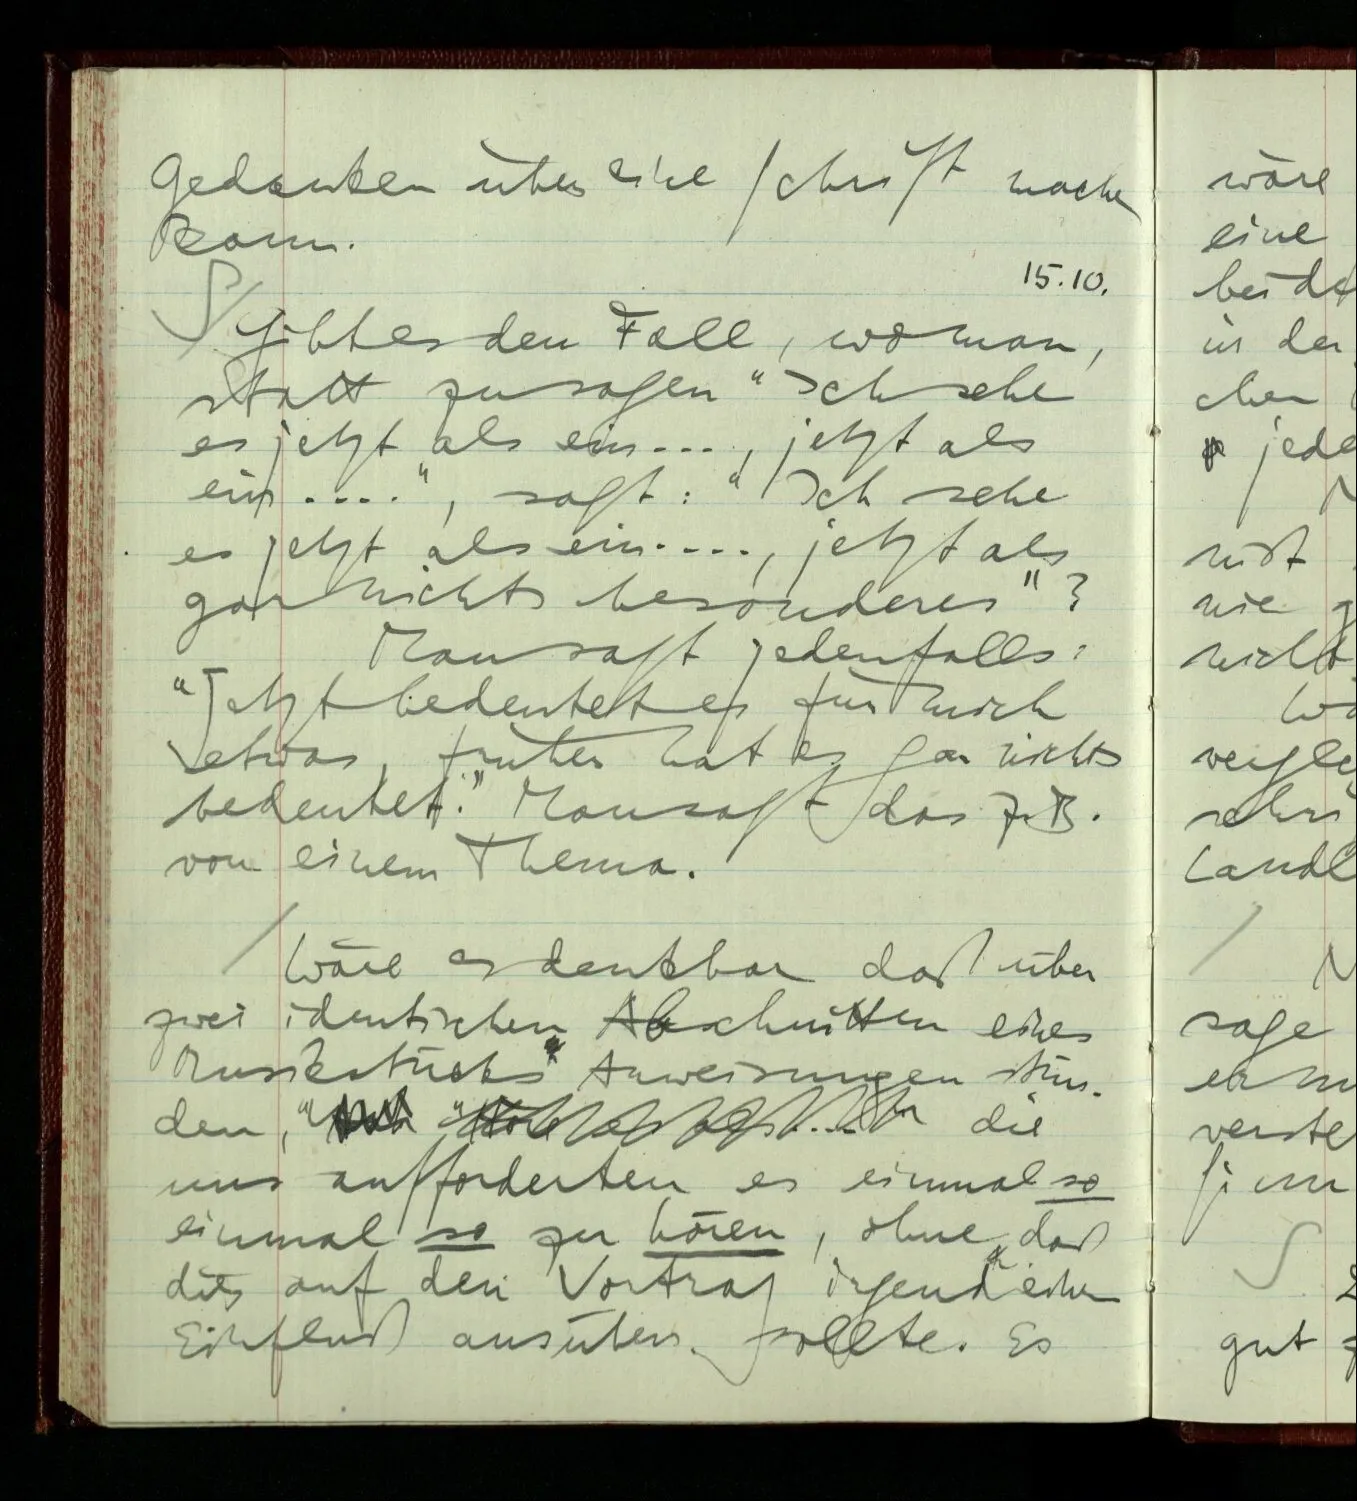 Gedanken über eine Schrift machen
kann.
15.10.
S / Gibt es den Fall, wo man,
statt zu sagen "Ich sehe
es jetzt als ein ..., jetzt als
ein ....", sagt: "Ich sehe
es jetzt als ein ...., jetzt als
gar nichts besonderes"?
Man sagt jedenfalls:
"Jetzt bedeutet es für mich
etwas, früher hat es gar nichts
bedeutet." Man sagt das z.B.
von einem Thema.
/ Wäre es denkbar daß über
zwei identischen Abschnitten eines
Musikstücks Anweisungen stün-
den, die
uns aufforderten es einmal so
einmal so zu hören, ohne daß
dies auf den Vortrag irgend einen
Einfluß ausüben sollte. Es
wäre
eine
beide
in der
chen
jede
nist
wie
nicht
vergle
schri
Landl
/
sage
er
verste
S
gut